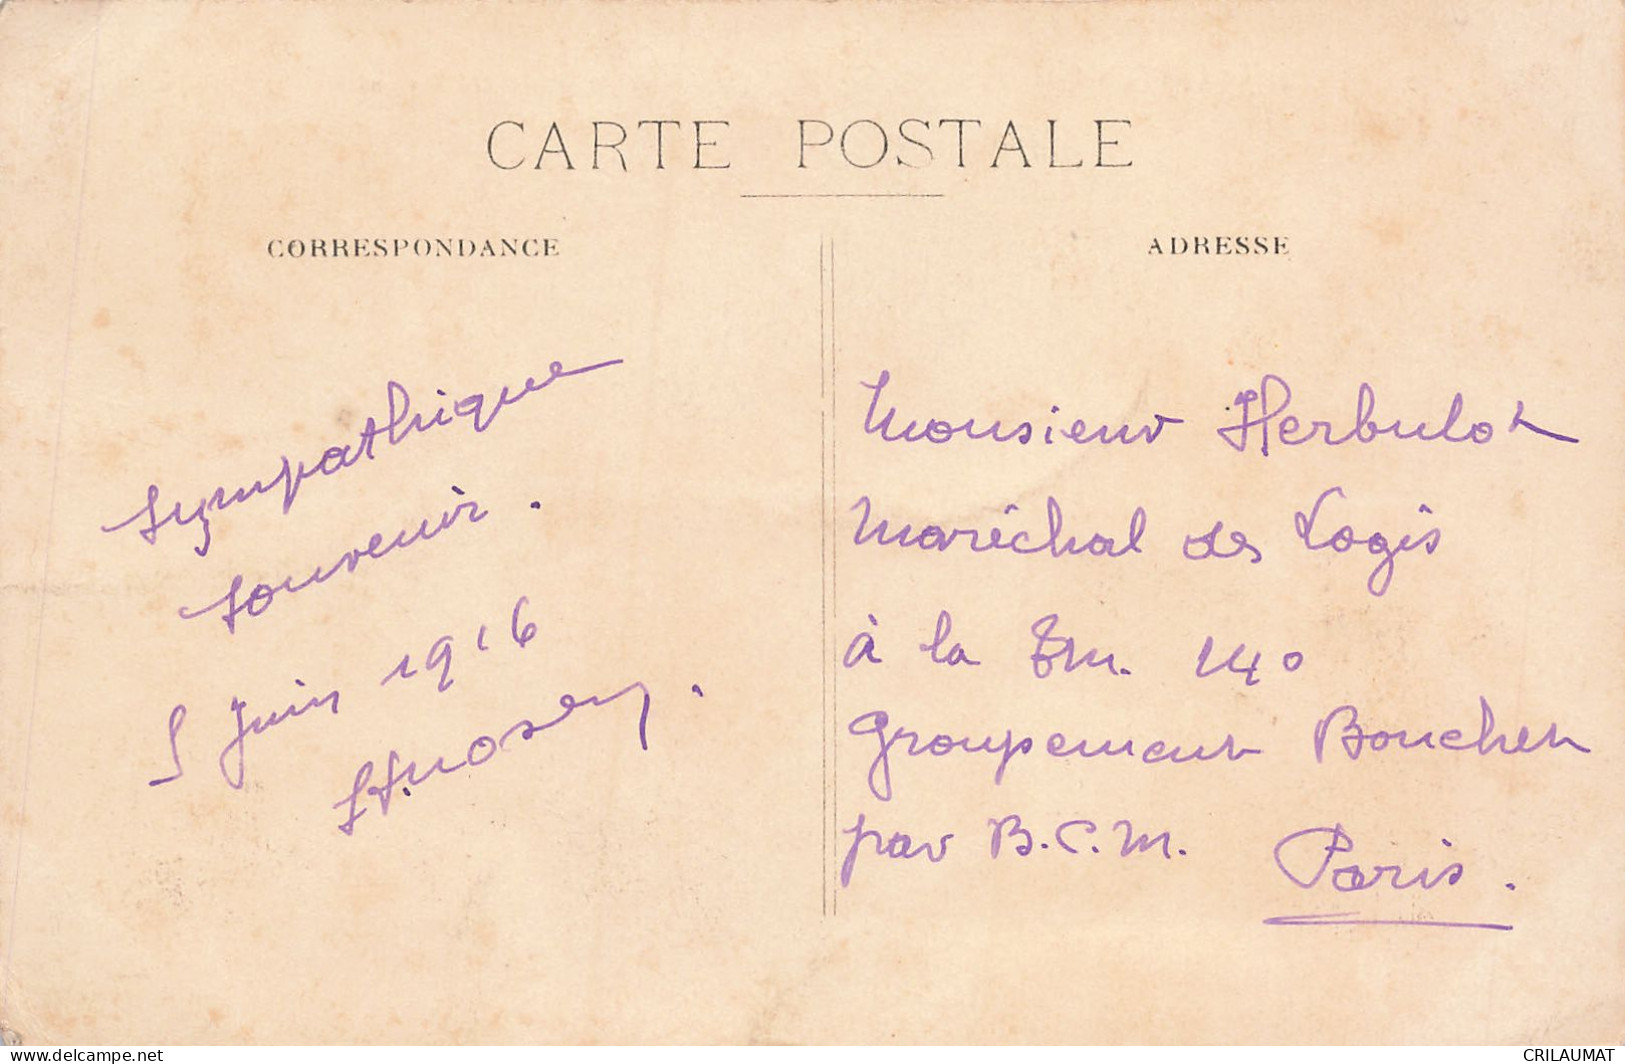 CARTE POSTALE
CORRESPONDANCE
ADRESSE
sympathique
souvenir.
5 Juin 1916
Monsieur Herbulot
Maréchal des Logis
à la 140
Groupement Boucher
par B.C.M. Paris.
https://www.delcampe.net
CRILAUMAT